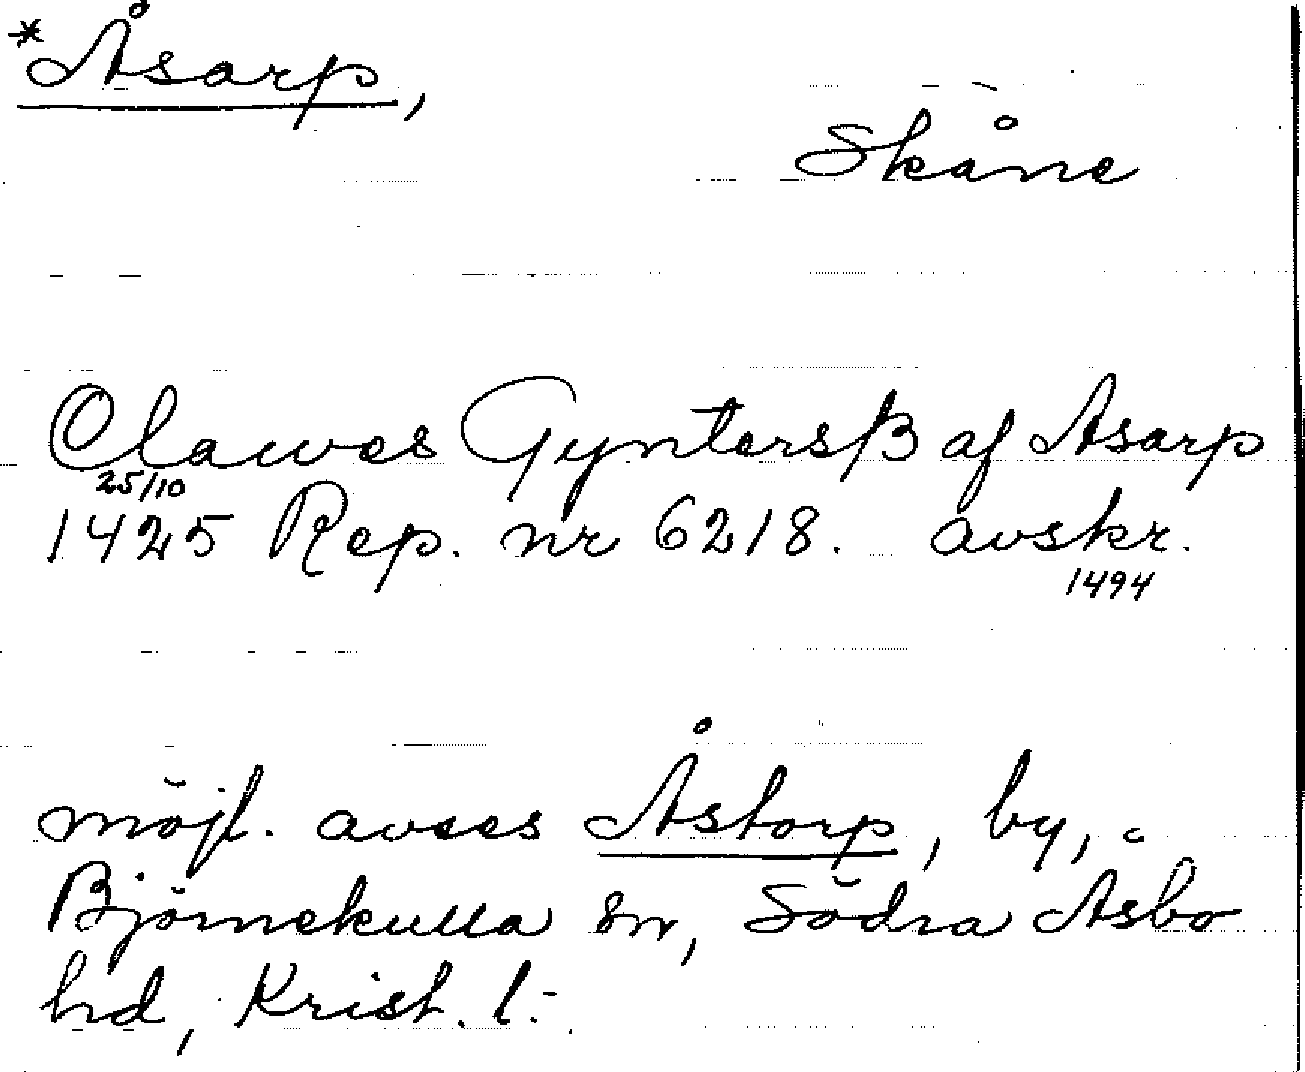 *Åsarp,
Skåne
Clawes Gyntersß af Asarp
25/10
1425 Rep. nr 6218. avskr.
1494
möjl. avses Åstorp, by,
Björnekulla sn, Södra Åsbo
hd, Krist. l.